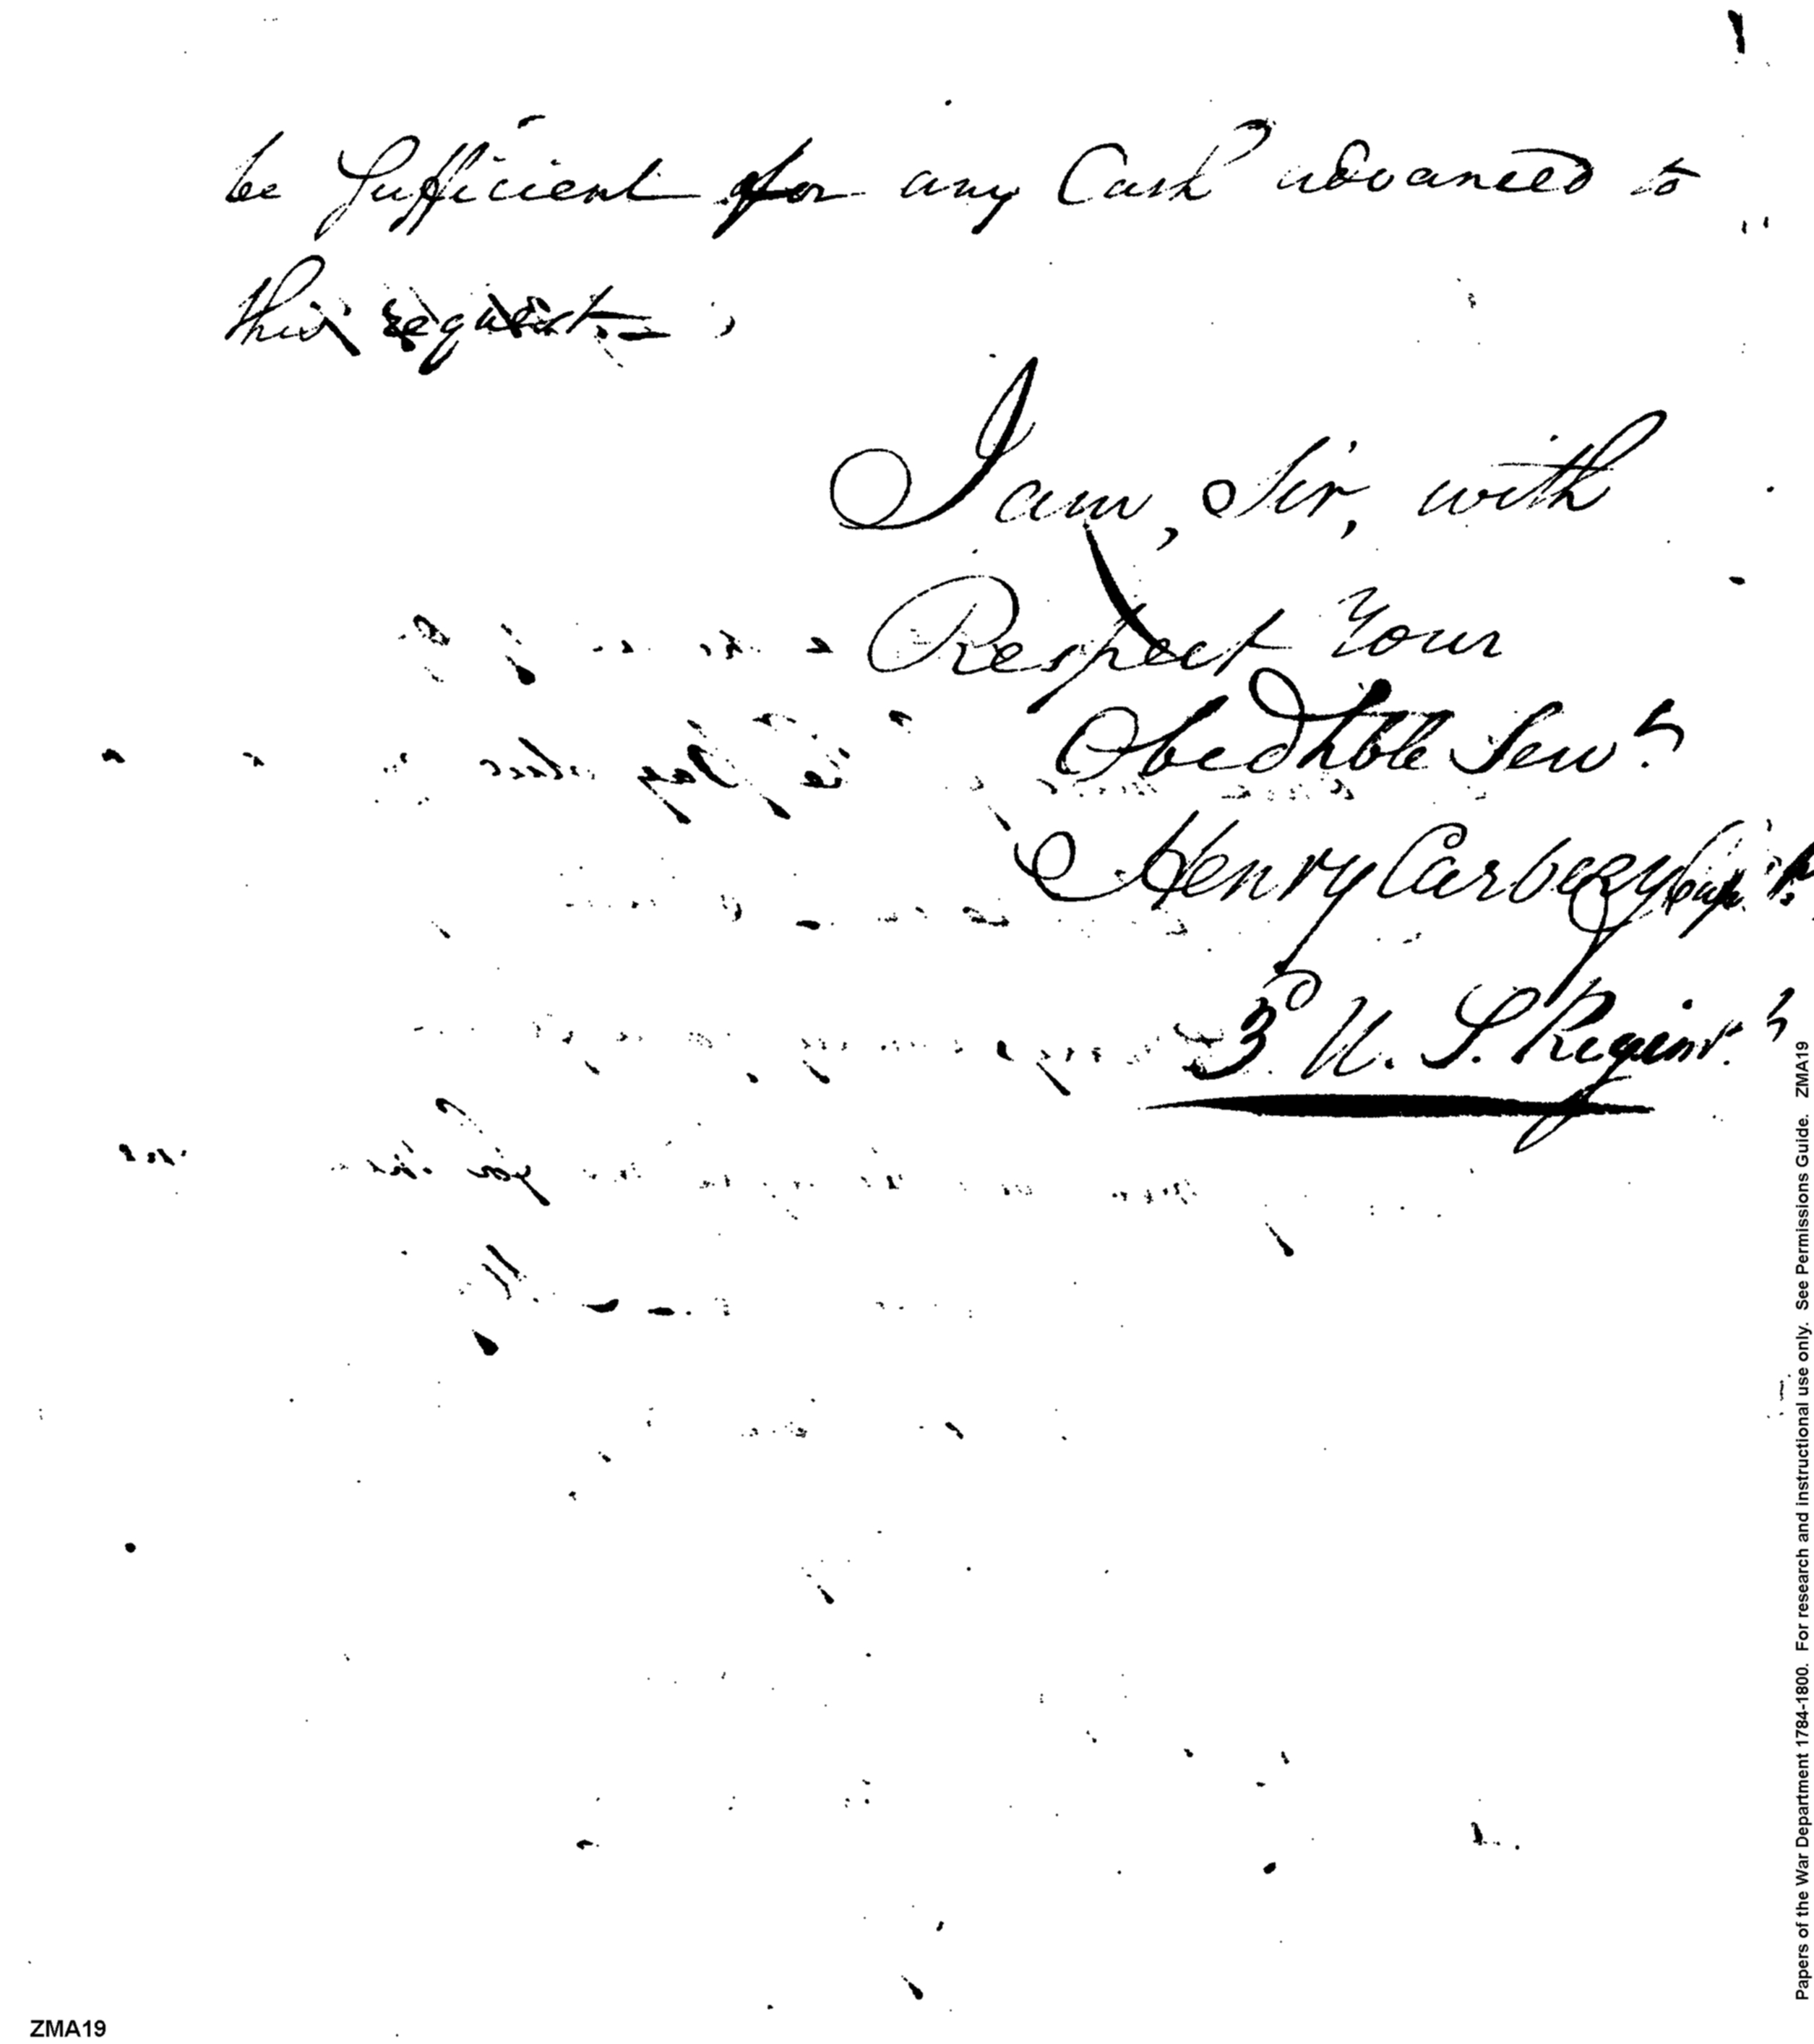 be Sufficient for any Cash advanced to
their request
I am, Sir, with
Respect Your
Obed Hble Servt
Henry Carbery Capt.
3d U. S. Regimt.
Papers of the War Department 1784-1800. For research and instructional use only. See Permissions Guide. ZMA19
ZMA19